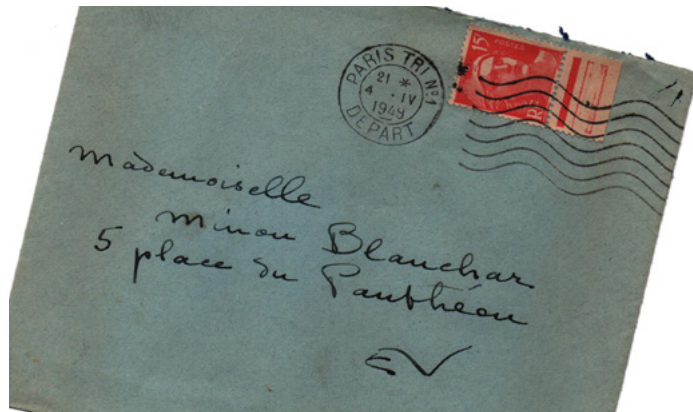 PARIS TRI Nº1
21 *
4 · IV
1949
DEPART
15 POSTES
RF
Mademoiselle
Minou Blanchar
5 place du Panthéon
EV